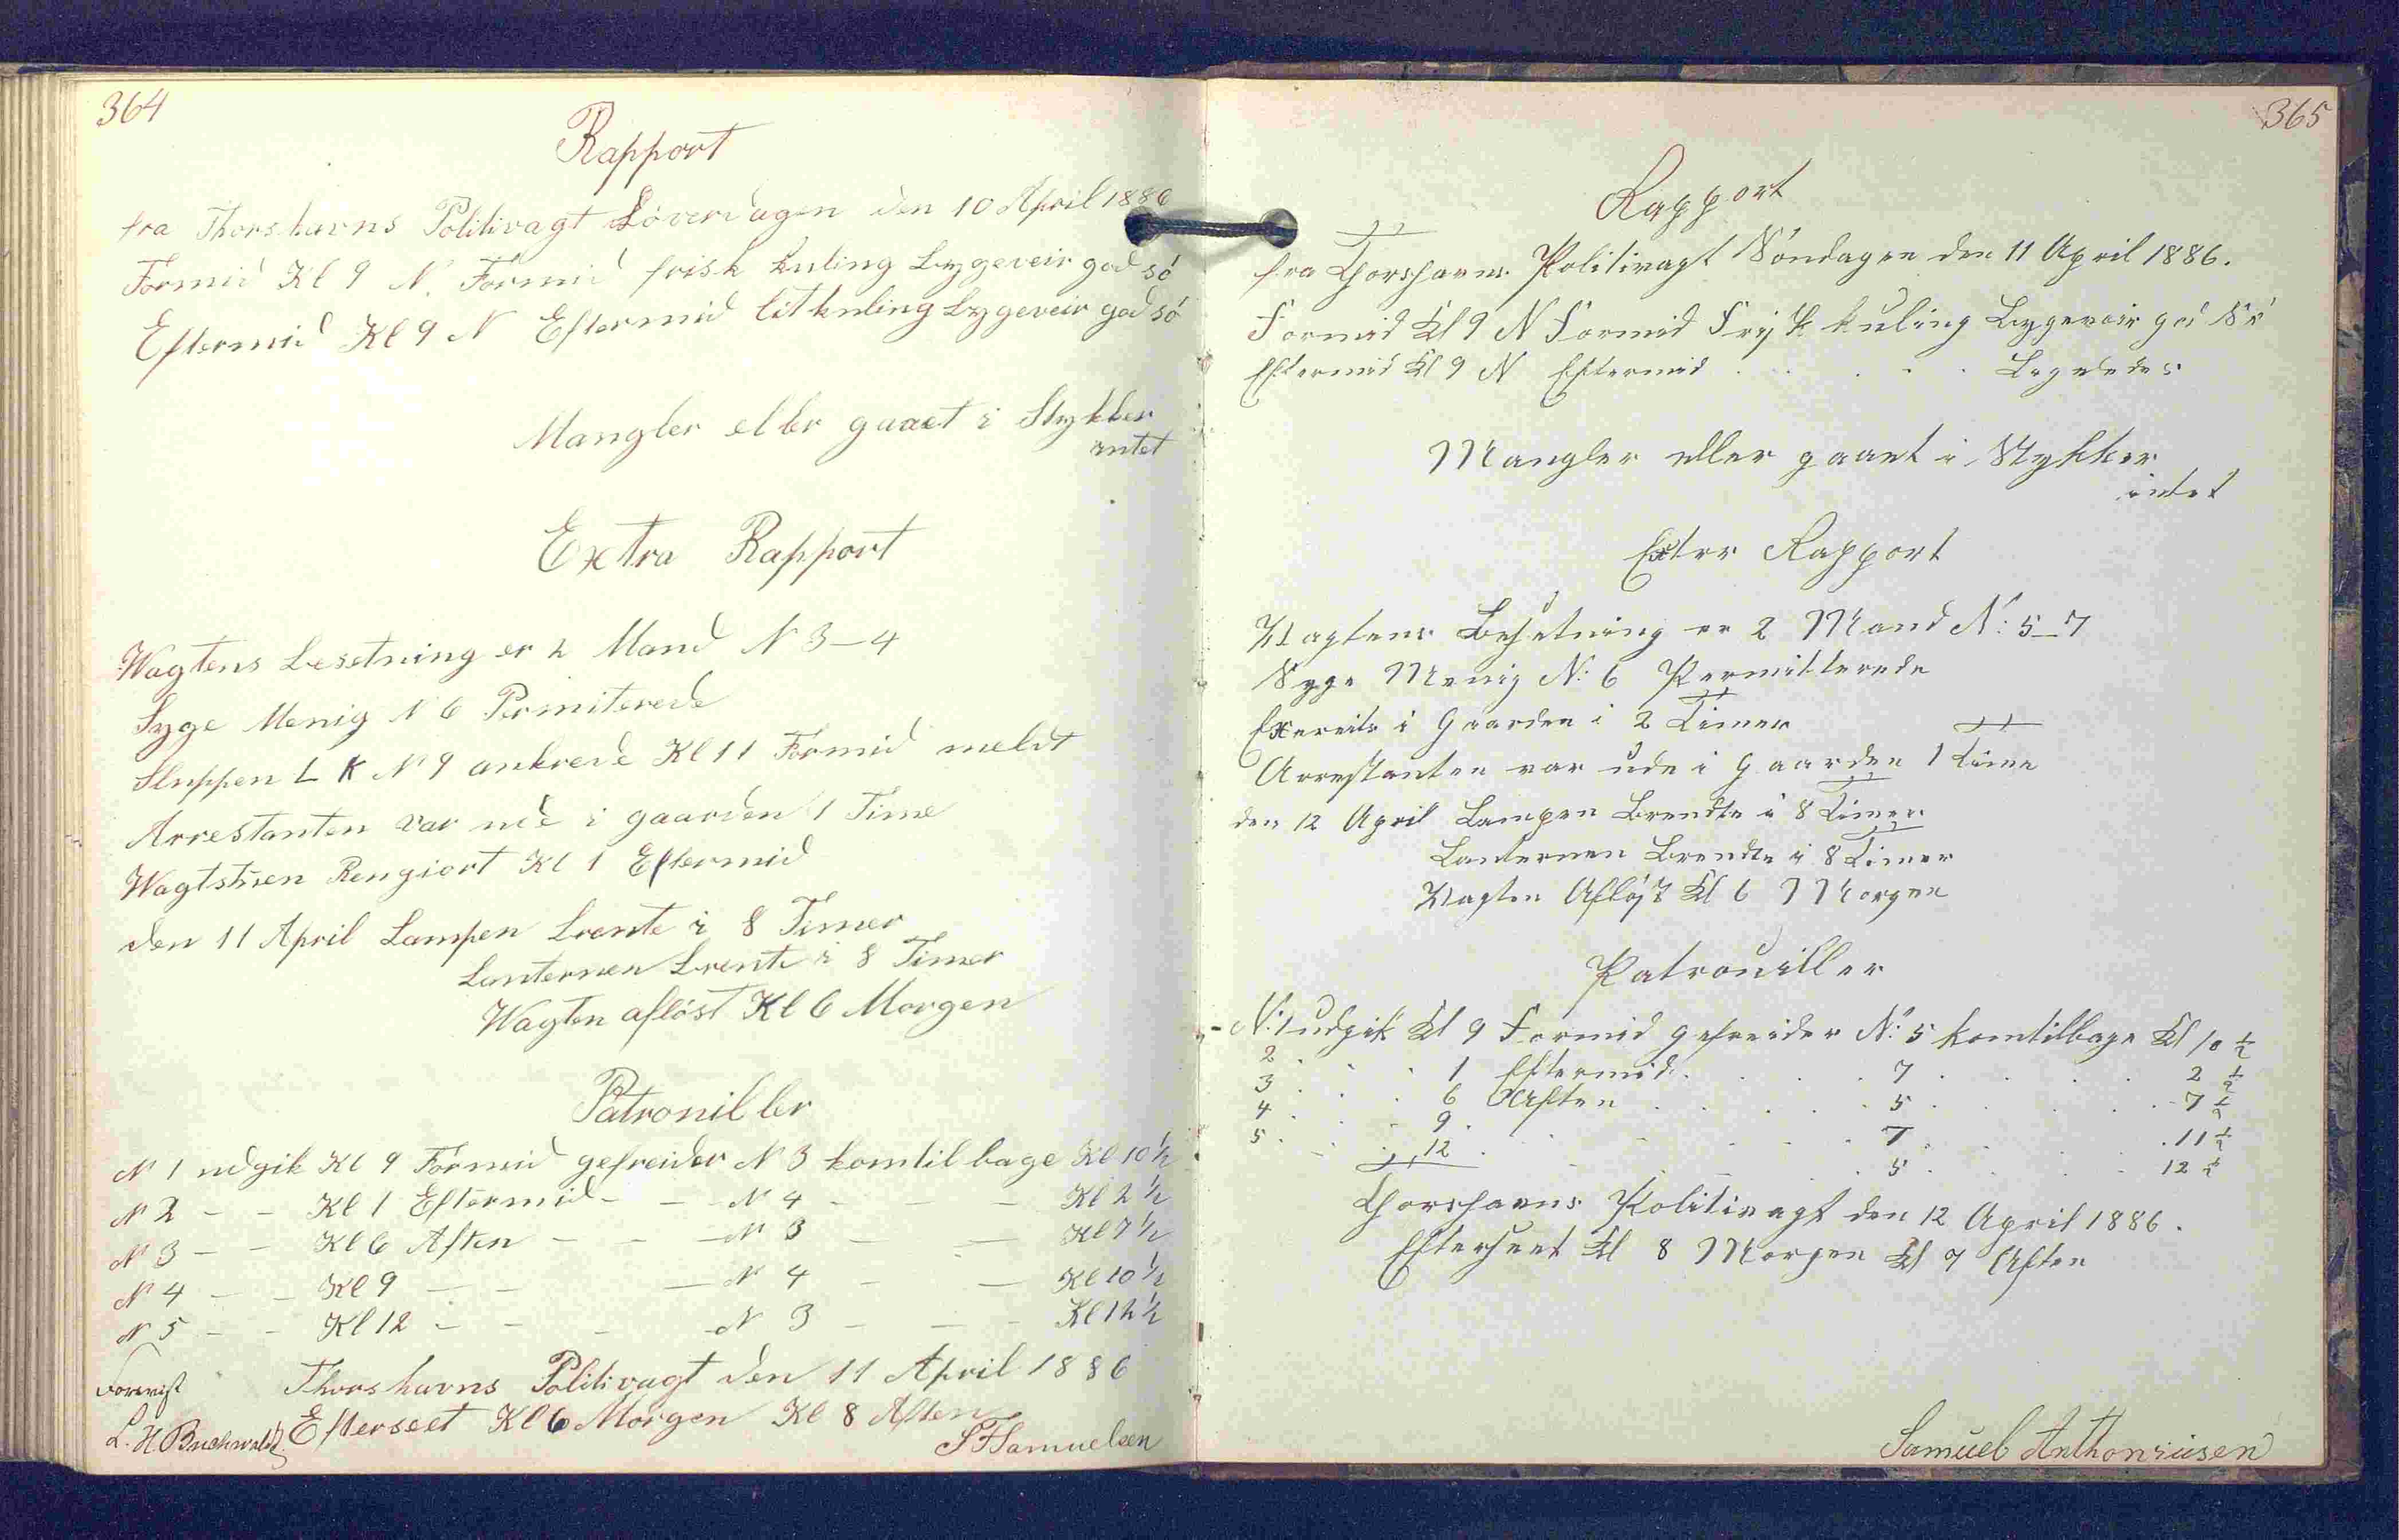 364
Rapport
fra Thorshavns Politivagt Löverdagen den 10 April 1886
Formid Kl 9 N. Formid frisk kuling Bygeveir god só
Eftermid Kl 9 N Eftermid litkuling Bygeveir god só
Mangler eller gaaet i Stykker
intet
Extra Rapport
Wagtens Besetning er 2 Mand N 3-4
Syge Menig N 6 Permiterede
Sluppen L K N 9 ankrede Kl 11 Formid meldt
Arrestanten var ude i gaarden 1 Time
Wagtstuen Rengiort Kl 1 Eftermid
den 11 April Lampen brente i 8 Timer
Lanternen brente i 8 Timer
Wagten aflöst Kl 6 Morgen
Patrouiller
N 1 udgik Kl 9 Formid gefreider N 3 komtilbage Kl 10 1/2
N 2 - - Kl 1 Eftermid - - - N 4 - - - Kl 2 1/2
N 3 - - Kl 6 Aften - - - N 3 - - Kl 7 1/2
N 4 - - Kl 9 - - - N 4 - - Kl 10 1/2
N 5 - - Kl 12 - - - N 3 - - - Kl 12 1/2
Forevist Thorshavns Politivagt den 11 April 1886
L. H. Buchwaldt Efterseet Kl 6 Morgen Kl 8 Aften
S F Samuelsen
365
Rapport
fra Thorshavns Politivagt Söndagen den 11 April 1886.
Formid Kl 9 N Formid Frisk kuling Bygeveir god Sö
Eftermid Kl 9 N Eftermid . . . . . Ligeledes
Mangler eller gaaet i Stykker
intet
Exter Rapport
Wagtens Besetning er 2 Mand N: 5-7
Syge Menig N: 6 Permitterede
Exersits i Gaarden i 2 Timer
Arrestanten var ude i Gaarden 1 Time
den 12 April Lampen Brendte i 8 Timer
Lanternen Brendte i 8 Timer
Wagten Aflöst Kl 6 Morgen
Patrouiller
- N: 1 udgik Kl 9 Formid gefreider N: 5 komtilbage Kl 10 1/2
2 . . . 1 Eftermid . . . 7 . . . . 2 1/2
3 . . . 6 Aften . . . . 5 . . . . 7 1/2
4 . . . 9 . . . . . 7 . . . . 11 1/2
5 . . . 12 . . . . . 5 . . . . 12 1/2
Thorshavns Politivagt den 12 April 1886.
Efterseet Kl 8 Morgen Kl 9 Aften
Samuel Anthoniusen